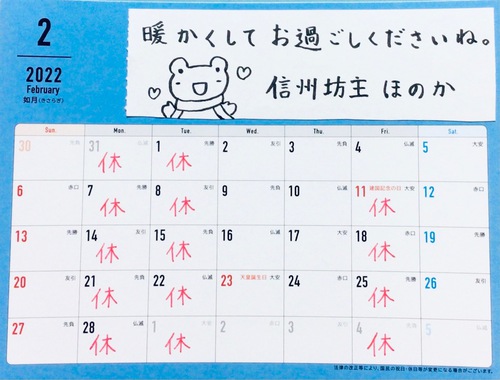 2
2022
February
如月(きさらぎ)
暖かくしてお過ごしくださいね。
信州坊主 ほのか
Sun. Mon. Tue. Wed. Thu. Fri. Sat.
30 先負 31 仏滅 1 先勝 2 友引 3 先負 4 仏滅 5 大安
休 休
6 赤口 7 先勝 8 友引 9 先負 10 仏滅 11 建国記念の日 大安 12 赤口
休 休 休
13 先勝 14 友引 15 先負 16 仏滅 17 大安 18 赤口 19 先勝
休 休 休
20 友引 21 先負 22 仏滅 23 天皇誕生日 大安 24 赤口 25 先勝 26 友引
休 休 休
27 先負 28 仏滅 1 大安 2 赤口 3 友引 4 先負 5 仏滅
休 休 休
法律の改正等により、国民の祝日・休日等が変更になる場合がございます。